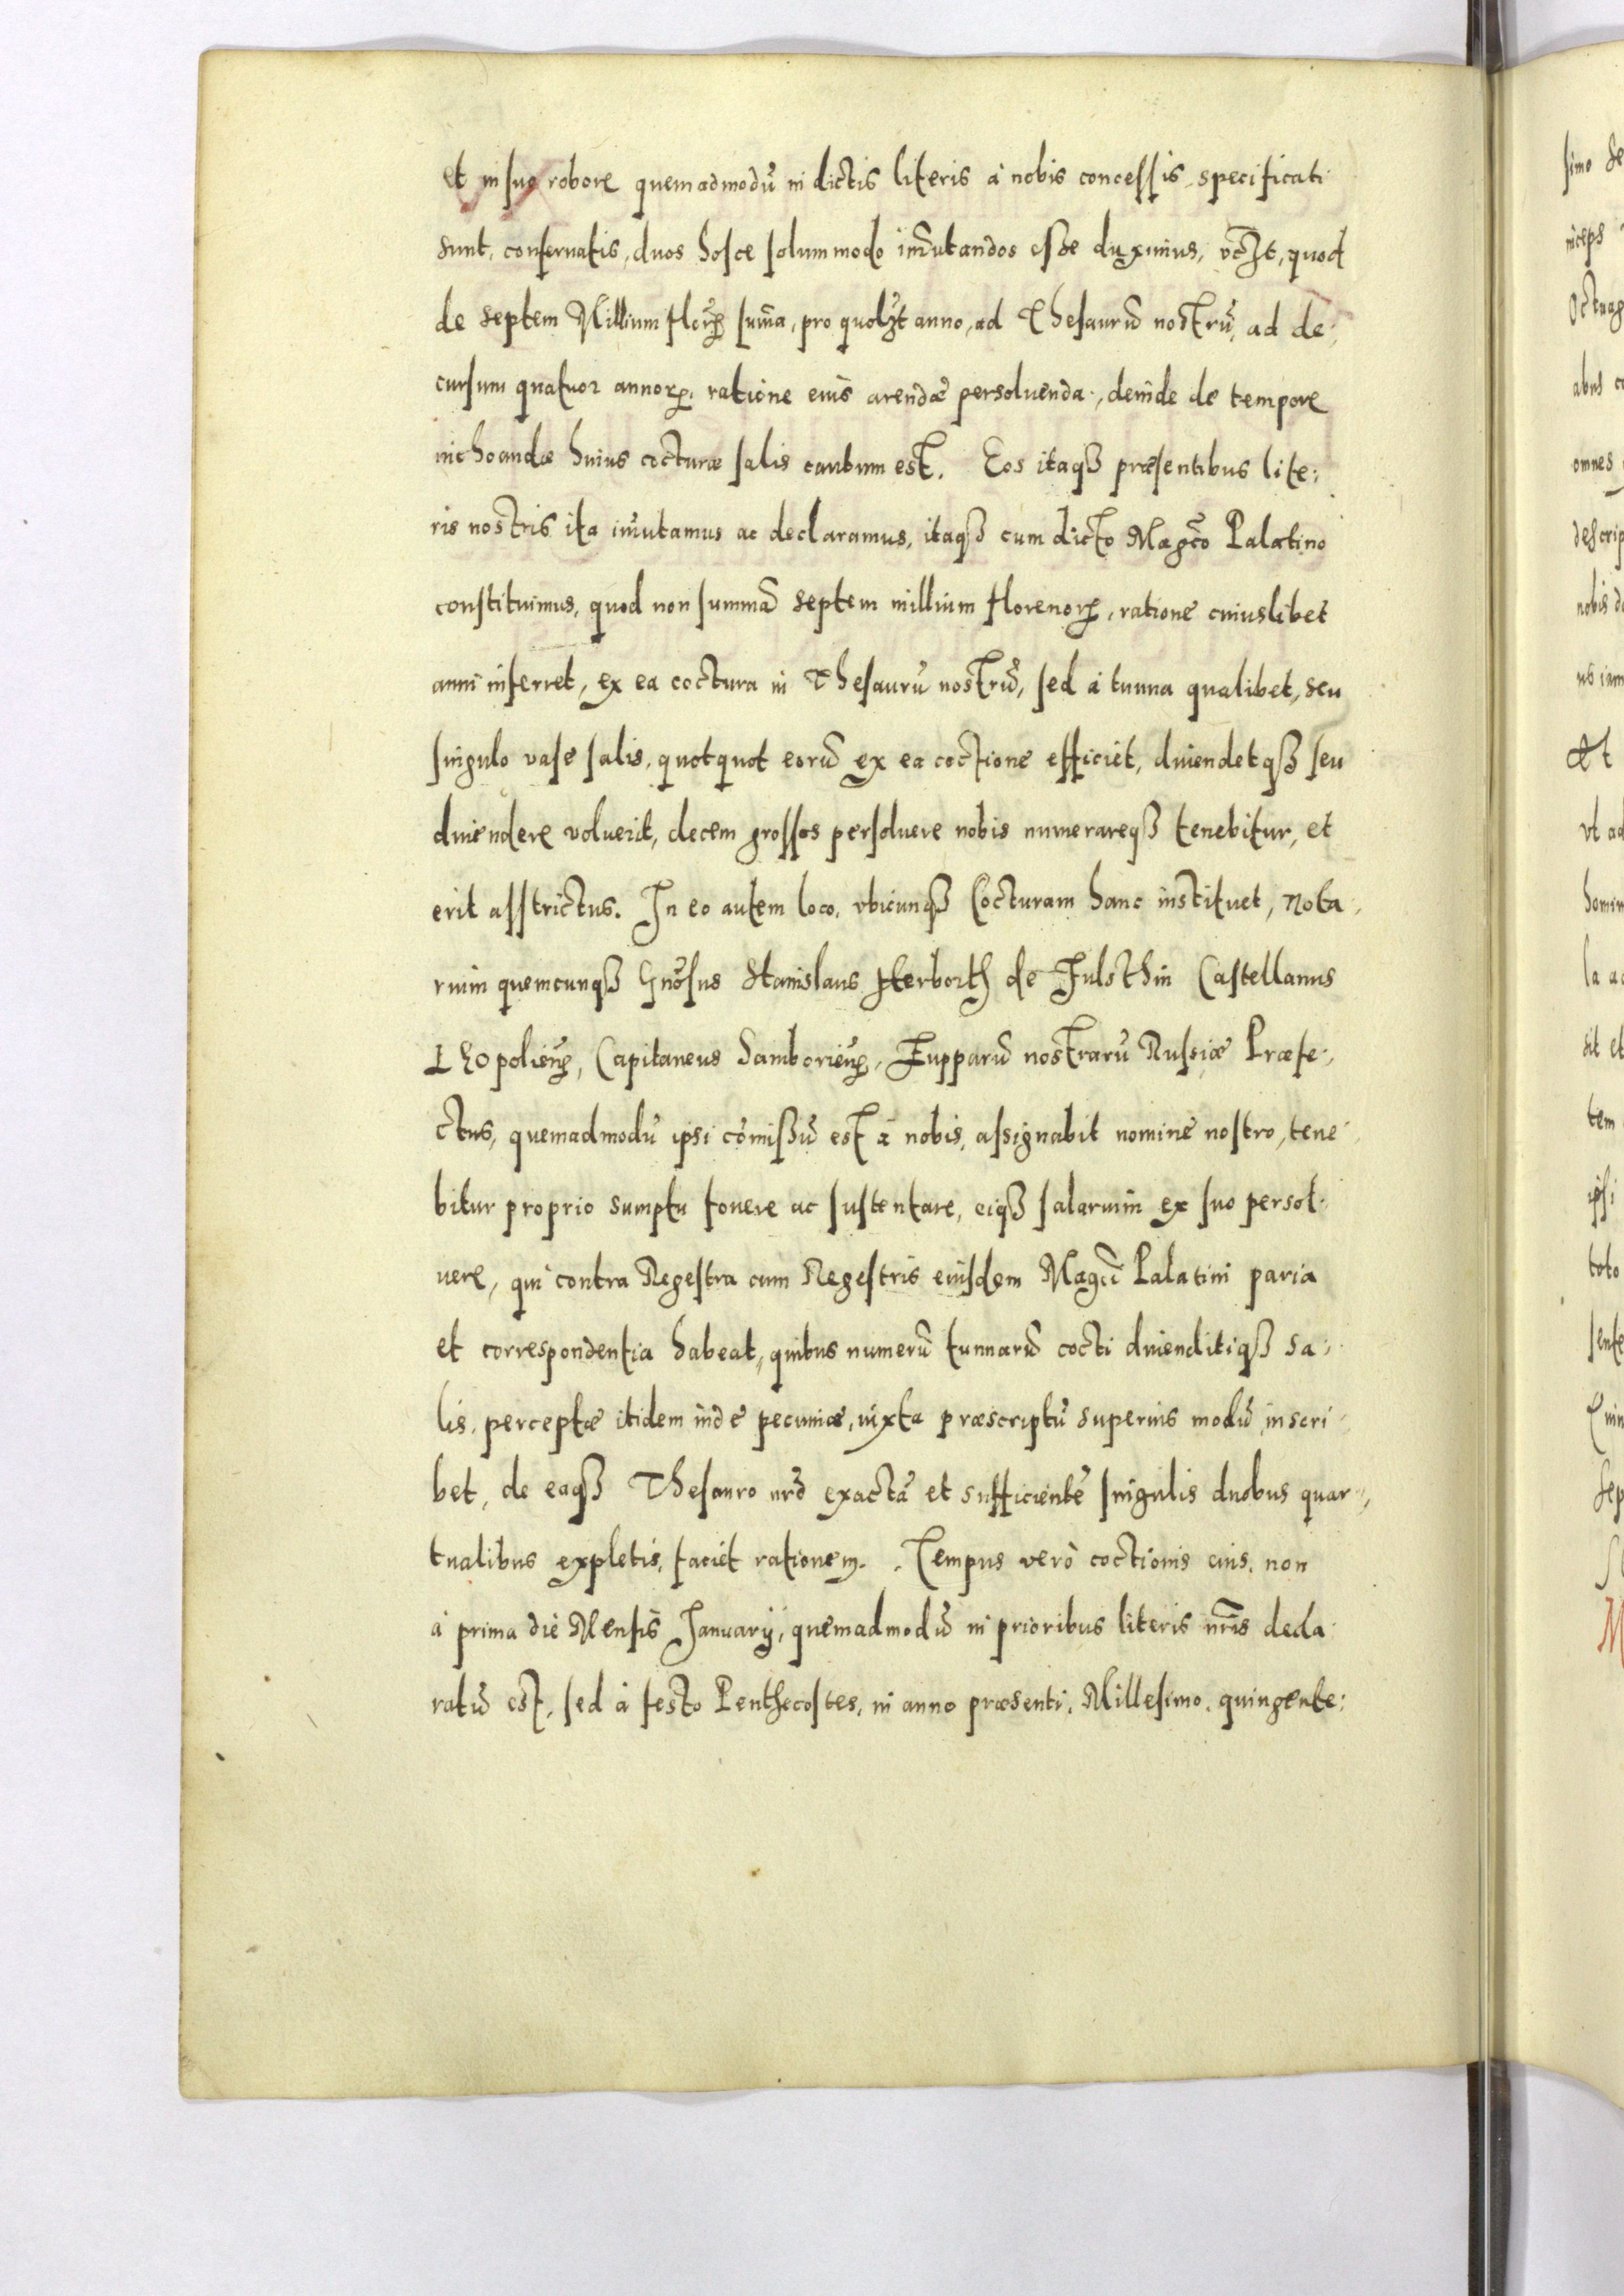 et in suo robore quemadmodū in dictis literis à nobis concessis specificati
sunt, conseruatis, duos hosce solummodo im̄utandos esse duximus, vczt, quod
de septem Millium flor̄ sum̄a, pro quolzt anno, ad Thesaurū nostrū, ad de:
cursum quatuor annorꝝ, ratione eius arendæ persoluenda, deinde de tempore
inchoandæ huius cocturæ salis cautum est. Eos itaqꝫ præsentibus lite:
ris nostris ita im̄utamus ac declaramus, itaqꝫ cum dicto Magco Palatino
constituimus, quod non summā septem millium florenorꝝ, ratione cuiuslibet
anni inferret, ex ea coctura in Thesaurū nostrū, sed à tunna qualibet, seu
singulo vase salis, quotquot eorū ex ea coctione efficiet, diuendetqꝫ seu
diuendere voluerit, decem grossos persoluere nobis numerareqꝫ tenebitur, et
erit asstrictus. In eo autem loco, vbicunqꝫ Cocturam hanc instituet, Nota:
rium quemcunqꝫ Gnōsus Stanislaus Herborth de Fulsthin Castellanus
Leopolien̄, Capitaneus Samborien̄, Zupparū nostrarū Russiæ Præfe:
ctus, quemadmodū ipsi cōmissū est a nobis, assignabit nomine nostro, tene
bitur proprio sumptu fouere ac sustentare, eiqꝫ salarium ex suo persol:
uere, qui contra Regestra cum Regestris eiusdem Magci Palatini paria
et correspondentia habeat, quibus numerū tunnarū cocti diuenditiqꝫ sa:
lis, perceptæ itidem inde pecuniæ, iuxta præscriptū superius modū, inscri
bet, de eaqꝫ Thesauro nrō exactā et sufficientē singulis duobus quar:
tualibus expletis, faciet rationem. Tempus verò coctionis eius, non
à prima die Mensis Januarij, quemadmodū in prioribus literis nr̄is decla
ratū est, sed à festo Penthecostes, in anno præsenti, Millesimo, quingente: